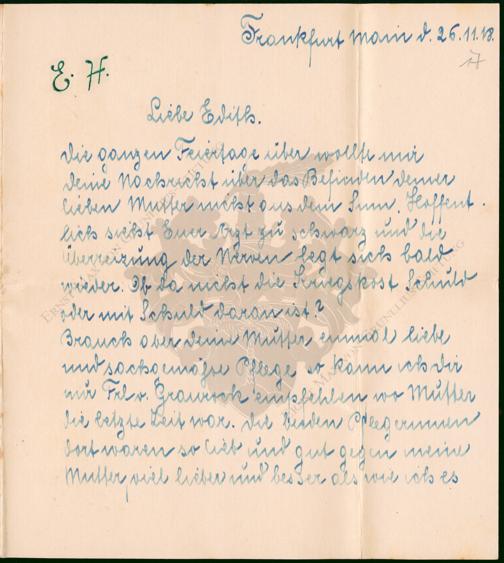 Frankfurt Main d. 26.11.18.
E. H.
Liebe Edith.
die ganzen Feiertage über wollte mir
deine Nachricht über das Befinden deiner
lieben Mutter nicht aus dem Sinn. Hoffent-
lich sieht Euer Arzt zu schwarz und die
Überreizung der Nerven legt sich bald
wieder. Ob da nicht die Kriegspost Schuld
oder mit Schuld daran ist?
Brauch aber deine Mutter einmal liebe
und sachgemäße Pflege so kann ich dir
nur Frl v. empfehlen wo Mutter
die letzte Zeit war. die beiden Pflegerinnen
dort waren so lieb und gut gegen meine
Mutter, viel lieber und besser als wie ich es